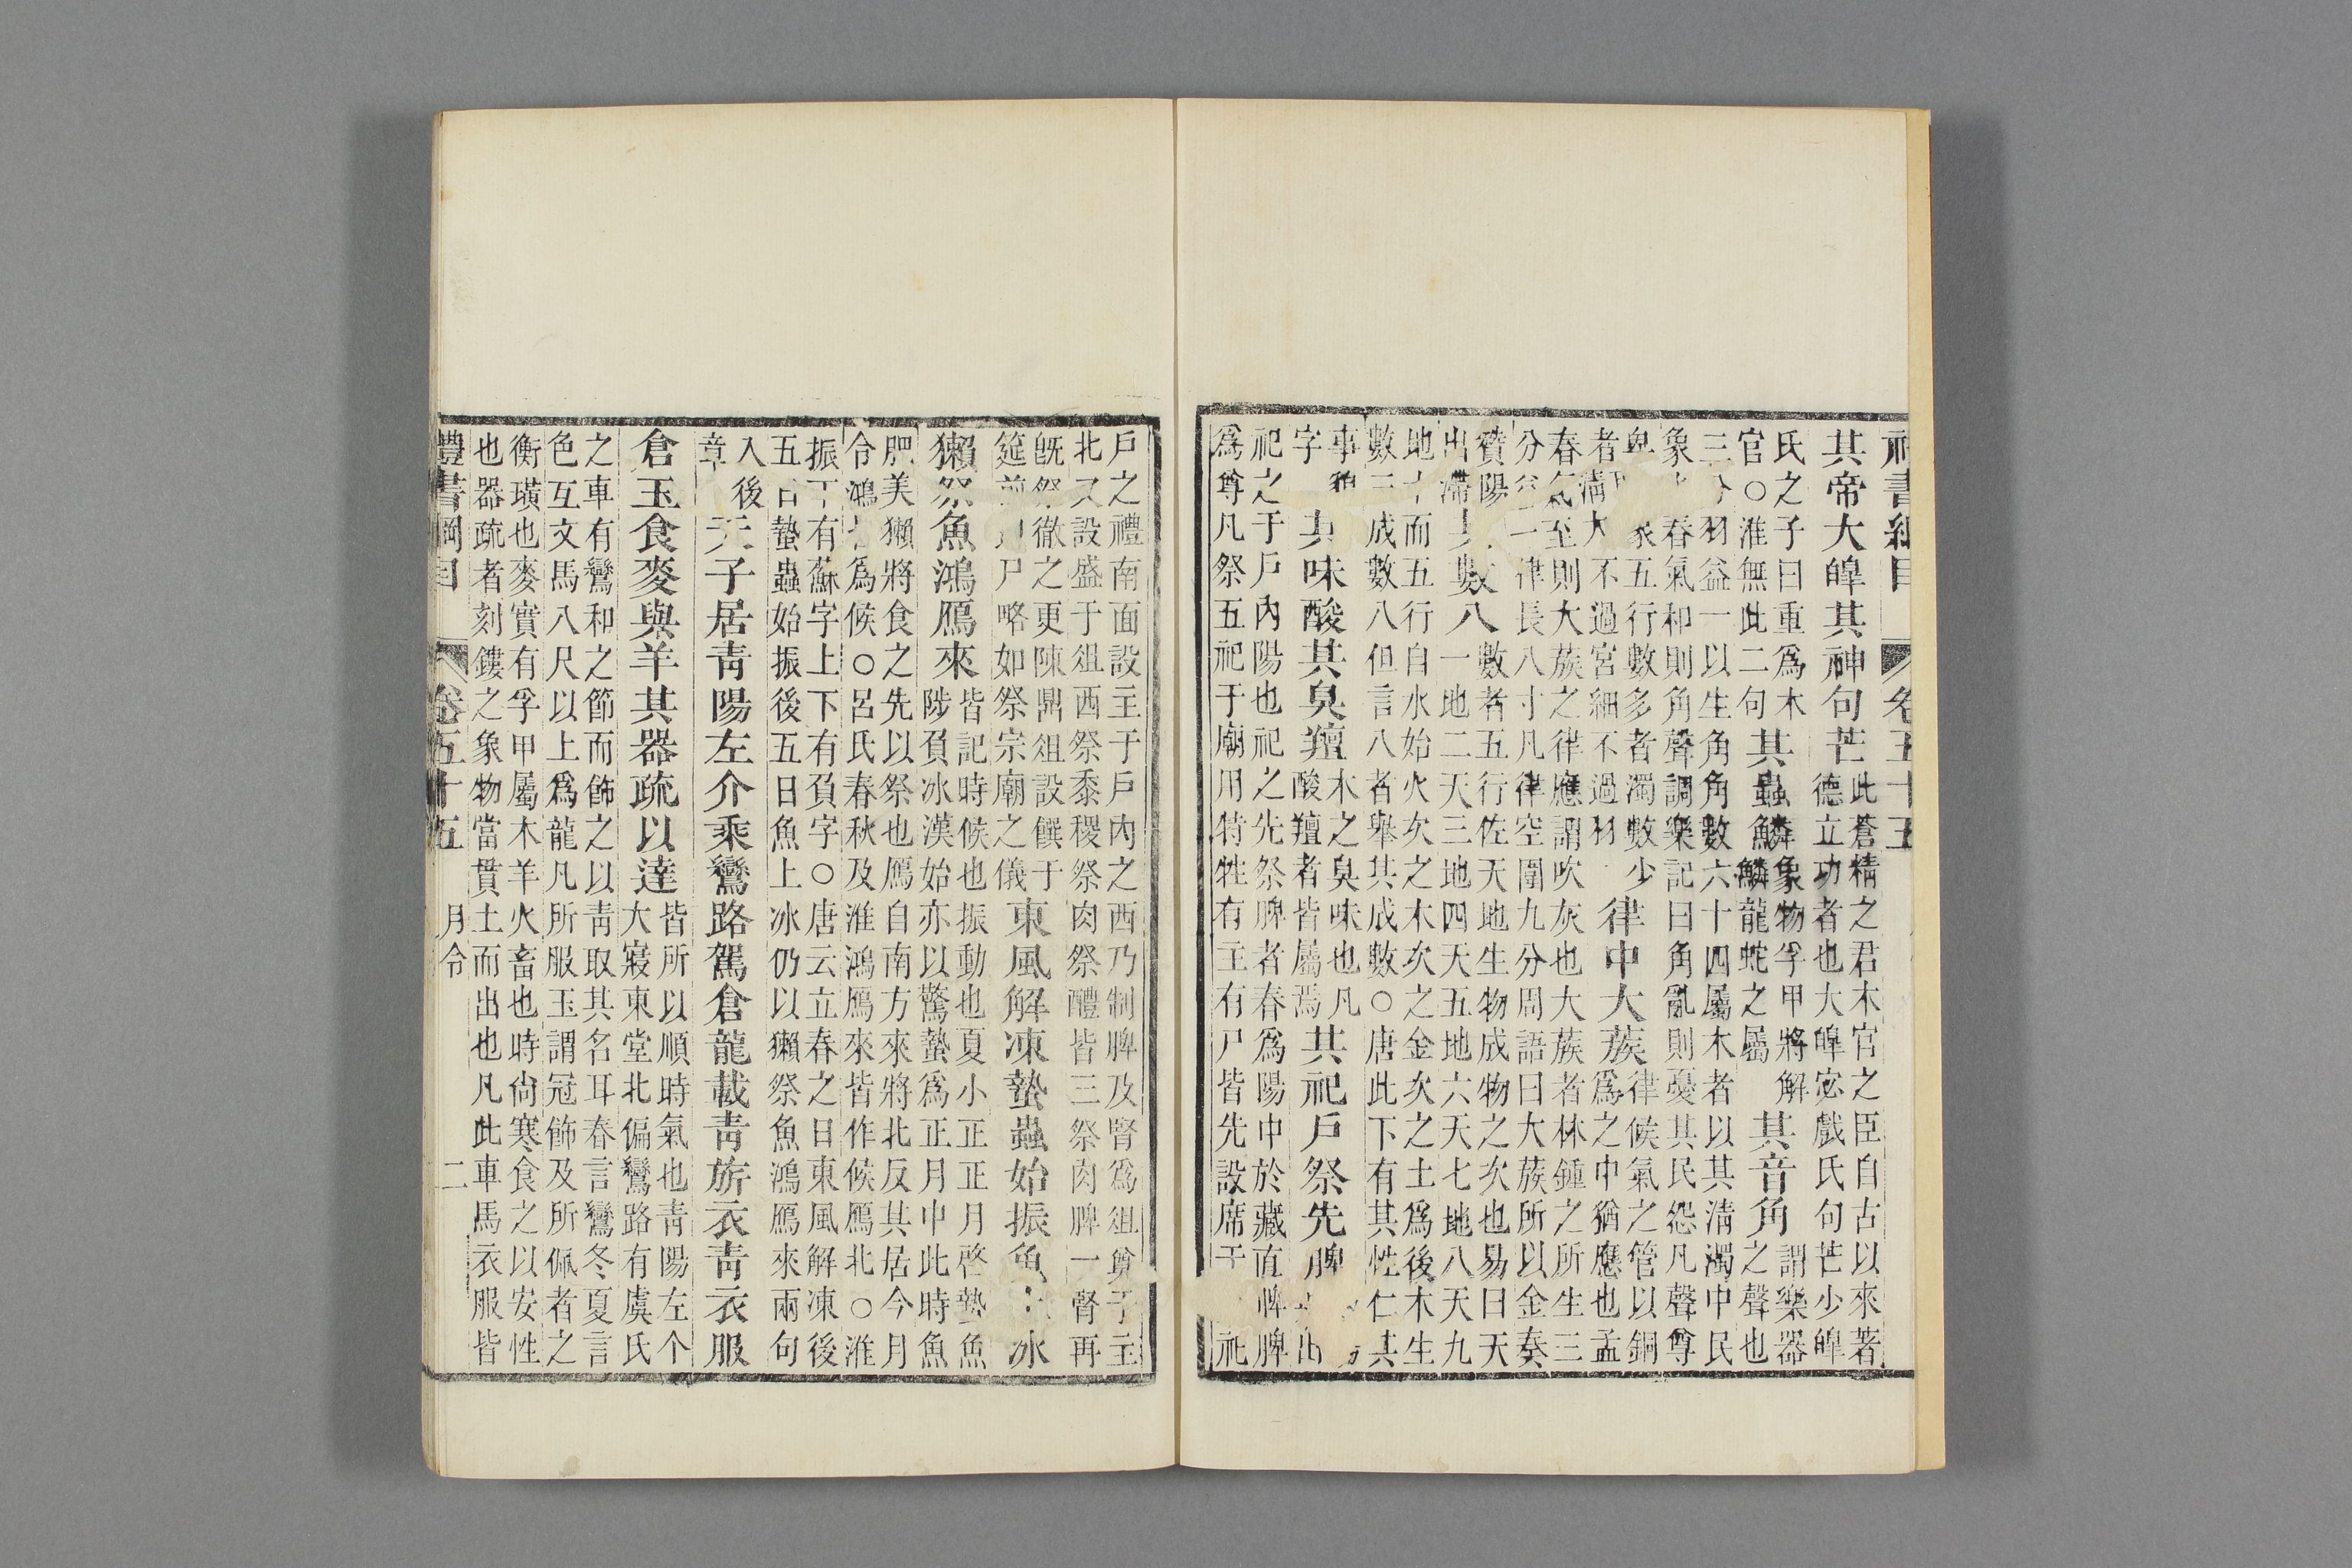 其帝大皥其神句芒此蒼精之君木官之臣自古以來著
德立功者也大皥宓戲氏句芒少皥
氏之子曰重爲木
官○淮無此二句其蟲鱗象物孚甲將解
鱗龍蛇之屬其音角謂樂器
之聲也
三分羽益一以生角角數六十四屬木者以其淸濁中民
象也春氣和則角聲調樂記曰角亂則憂其民怨凡聲尊
卑取象五行數多者濁數少
者淸大不過宮細不過羽律中大蔟律候氣之管以銅
爲之中猶應也孟
春氣至則大蔟之律應應謂吹灰也大蔟者林鍾之所生三
分益一律長八寸凡律空圍九分周語曰大蔟所以金奏
贊陽
出滯其數八數者五行佐天地生物成物之次也易曰天
一地二天三地四天五地六天七地八天九
地十而五行自水始火次之木次之金次之土爲後木生
數三成數八但言八者舉其成數○唐此下有其性仁其
事貌
字其味酸其臭羶木之臭味也凡
酸羶者皆屬焉其祀戶祭先脾
祀之于戶內陽也祀之先祭脾者春爲陽中於藏直脾脾
爲尊凡祭五祀于廟用特牲有主有尸皆先設席于祀
戶之禮南面設主于戶內之西乃制脾及腎爲俎奠于主
北又設盛于俎西祭黍稷祭肉祭醴皆三祭肉脾一腎再
旣祭徹之更陳鼎俎設饌于
筵前尸略如祭宗廟之儀東風解凍蟄蟲始振魚上冰
獺祭魚鴻鴈來皆記時候也振動也夏小正正月啓蟄魚
陟負冰漢始亦以驚蟄爲正月中此時魚
肥美獺將食之先以祭也鴈自南方來將北反其居今月
令鴻爲候○呂氏春秋及淮鴻鴈來皆作候鴈北○淮
振下有蘇字上下有負字○唐云立春之日東風解凍後
五日蟄蟲始振後五日魚上冰仍以獺祭魚鴻鴈來兩句
入後
章天子居靑陽左介乘鸞路駕倉龍載靑旂衣靑衣服
倉玉食麥與羊其器疏以達皆所以順時氣也靑陽左个
大寢東堂北偏鸞路有虞氏
之車有鸞和之節而飾之以靑取其名耳春言鸞冬夏言
色互文馬八尺以上爲龍凡所服玉謂冠飾及所佩者之
衡璜也麥實有孚甲屬木羊火畜也時尙寒食之以安性
也器疏者刻鏤之象物當貫土而出也凡此車馬衣服皆
禮書綱目 卷五十五 月令 二